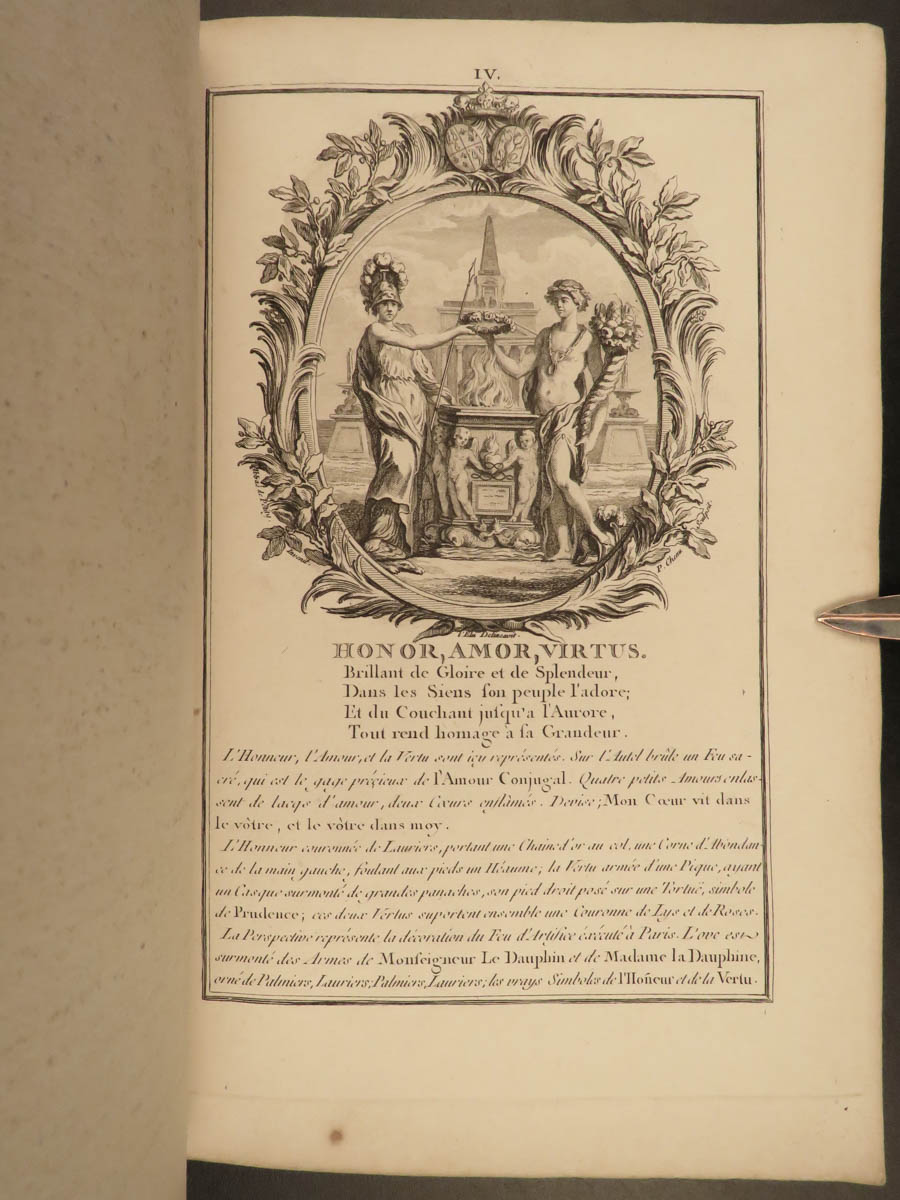 IV.
l'Eda Delineavit.
HONOR, AMOR, VIRTUS.
Brillant de Gloire et de Splendeur,
Dans les Siens ſon peuple l'adore;
Et du Couchant juſqu'a l'Aurore,
Tout rend homage à ſa Grandeur.
L'Honneur, l'Amour, et la Vertu sont icy représentés. Sur l'Autel brûle un Feu sa-
cré, qui est le gage précieux de l'Amour Conjugal. Quatre petits Amours enlas-
sent de lacqs d'amour, deux Cœurs enflâmés. Devise; Mon Cœur vit dans
le vôtre, et le vôtre dans moy.
L'Honneur couronnée de Lauriers, portant une Chaine d'or au col, une Corne d'Abondan-
ce de la main gauche, foulant aux pieds un Héaume; la Vertu armée d'une Pique, ayant
un Casque surmonté de grandes panaches, son pied droit posé sur une Tortuë, simbole
de Prudence; ces deux Vértus suportent ensemble une Couronne de Lys et de Roses.
La Perspective représente la décoration du Feu d'Artifice éxécuté à Paris. L'ove est
surmonté des Armes de Monſeigneur Le Dauphin et de Madame la Dauphine,
orné de Palmiers, Lauriers; Palmiers, Lauriers; les vrays Simboles de l'Hoñeur et de la Vertu.